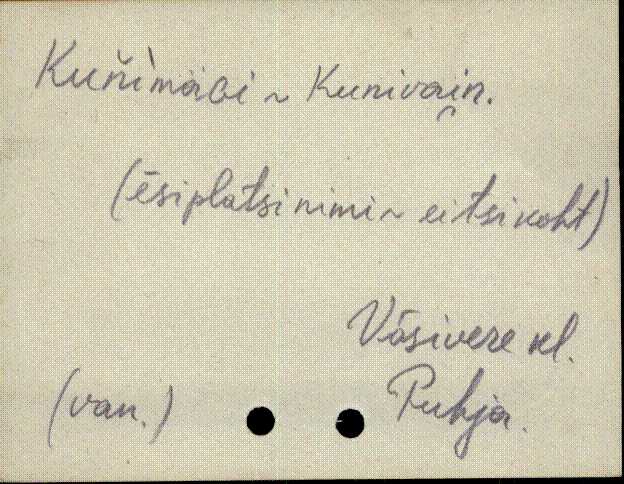 Kuńimäɢi ~ Kunivai̯n.
(ēsiplatsi nimi ~ eitsikoht)
Võsivere kl.
(van.) Puhja.